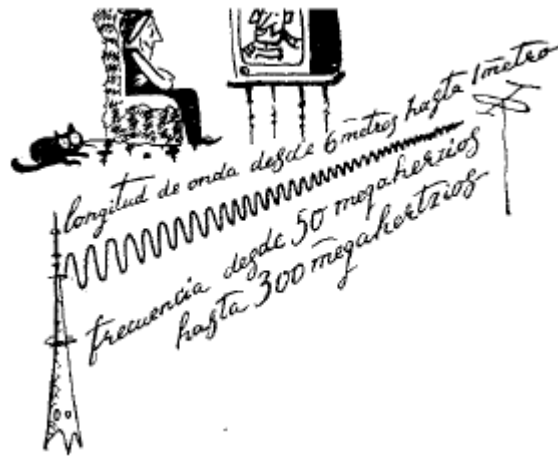 longitud de onda desde 6 metros hasta 1 metro
frecuencia desde 50 megaherzios
hasta 300 megahertzios